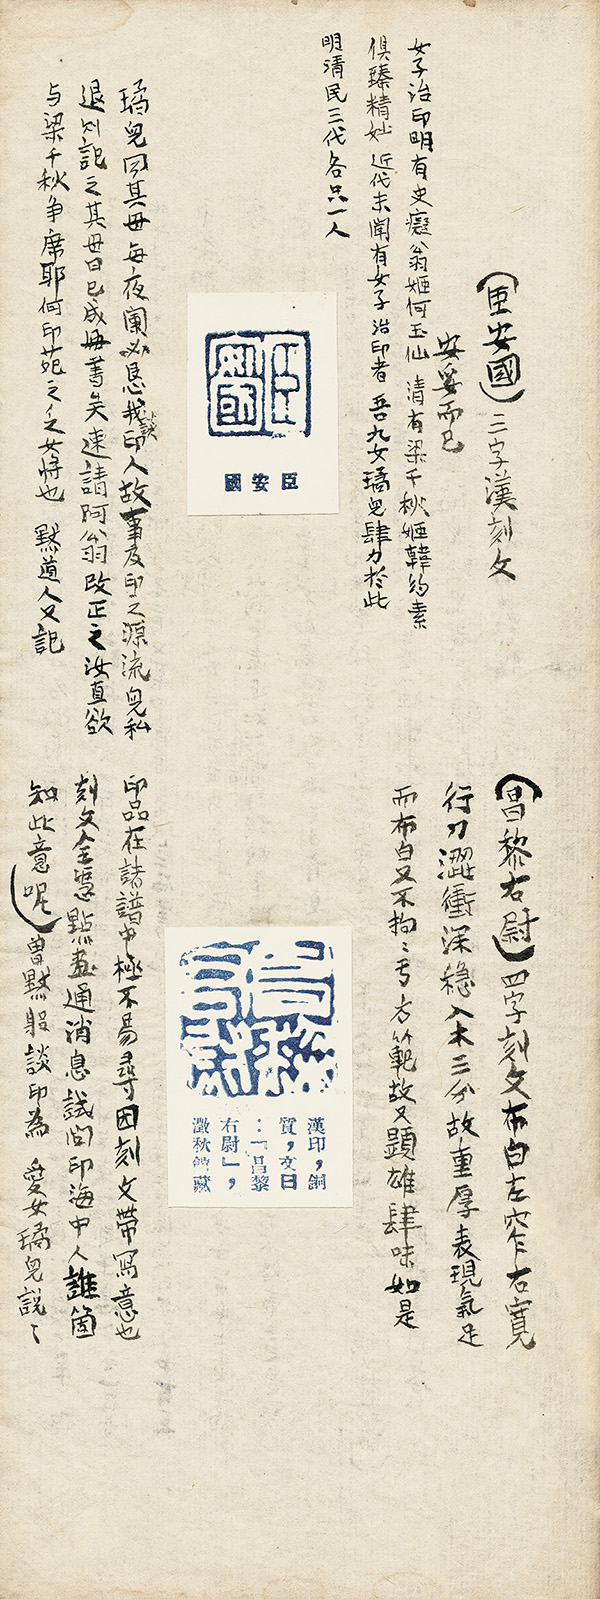 (臣安國) 三字漢刻文
安妥而已
女子治印明有史癡翁姬何玉仙 清有梁千秋姬韓約素
俱臻精妙 近代未聞有女子治印者 吾九女璚兒肆力於此
明清民三代各只一人
臣安國
璚兒同其毋每夜闌必懇我談印人故事及印之源流兒私
退則記之其毋曰已成冊書矣速請阿翁改正之汝直欲
与梁千秋争席耶何印苑之乏女將也 黙道人又記
(昌黎右尉) 四字刻文布白左窄右寬
行刀澀衝深穩入木三分故重厚表現氣足
而布白又不拘〻亏方範故又顯雄肆味如是
漢印，銅
質，文曰
：「昌黎
右尉」，
澂秋館藏
印品在諸譜中極不易尋因刻文帶寫意也
刻文全憑點畫通消息試問印海中人誰箇
知此意呢) 曾黙躬談印為 愛女璚兒說〻